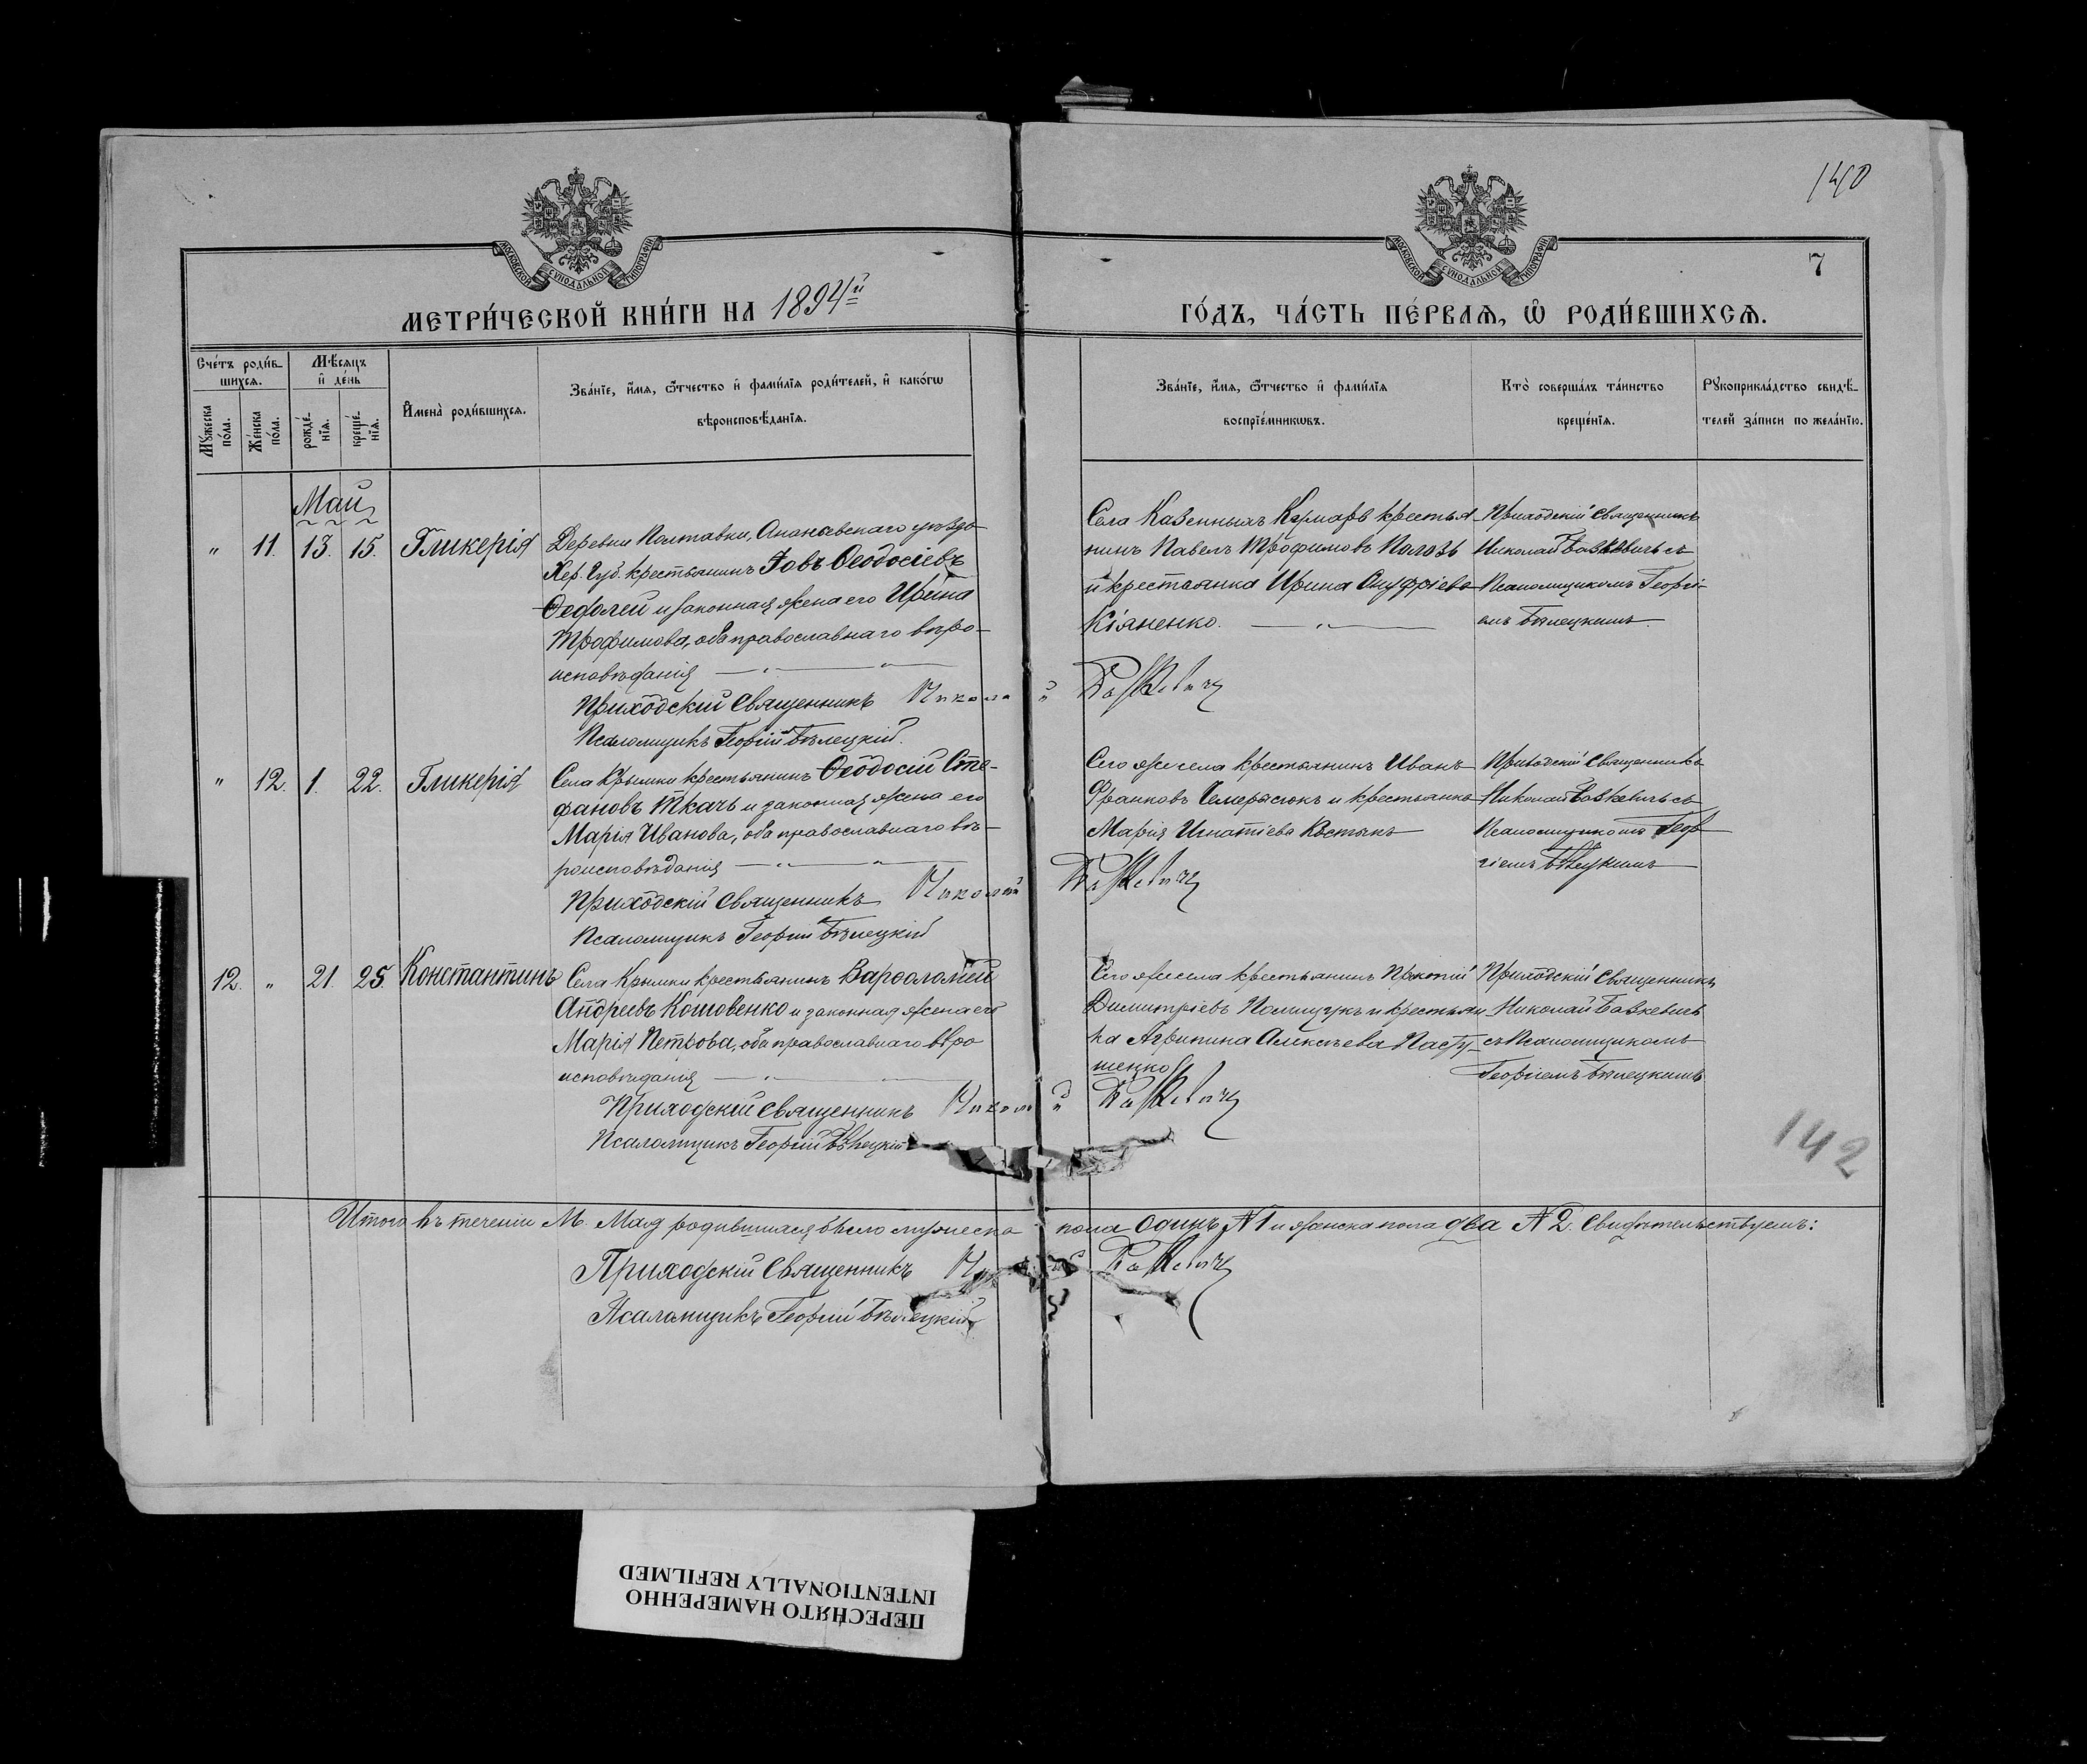 140
7
МОСКОВСКОЙ СУНОДАЛЬНОЙ ТИПОГРАФІИ
МОСКОВСКОЙ СУНОДАЛЬНОЙ ТИПОГРАФІИ
МЕТРИ́ЧЕСКОЙ КНИ́ГИ НА 1894й
ГО́ДЪ, ЧА́СТЬ ПЕ́РВАѦ, Ѽ РОДИ́ВШИХСѦ.
Сче́тъ роди́в-
шихсѧ.
Мꙋжеска по́ла.
Же́нска по́ла.
Мѣ́сѧцъ
и҆ де́нь
рожде́-
нїѧ.
креще́-
нїѧ.
И҆мена̀ роди́вшихсѧ.
Зва́нїе, и҆́мѧ, ѻ҆́тчество и҆ фами́лїѧ роди́телей, и҆ како́гѡ
вѣроисповѣ́данїѧ.
Зва́нїе, и҆́мѧ, ѻ҆́тчество и҆ фами́лїѧ
воспрїе́мникѡвъ.
Кто̀ соверша́лъ та́инство
креще́нїѧ.
Рꙋкоприкла́дство свидѣ́-
телей за́писи по жела́нїю.
Май
" 11. 13. 15. Гликерія
Деревни Полтавки, Ананьевскаго уѣзда
Хер. Губ. крестьянинъ Іовъ Ѳеодосіевъ
и законная жена его Ирина
Трофимова, оба православнаго вѣро-
исповѣданія — " — " —
Приходскій Священникъ Николай Бавкевичъ
Псаломщикъ Георгій Бѣлецкій.
Села Казенныхъ крестья-
нинъ Павелъ Трофимовъ
и крестьянка Ирина Онуфріева
Кіяненко. — " —
Приходскій Священникъ
Николай Бавкевичъ съ
Псаломщикомъ Георгі-
емъ Бѣлецкимъ.
" 12. 1. 22. Гликерія
Села Крымки крестьянинъ Ѳеодосій Сте-
фановъ Ткачъ и законная жена его
Марія Иванова, оба православнаго вѣ-
роисповѣданія — " — " —
Приходскій Священникъ Николай Бавкевичъ
Псаломщикъ Георгій Бѣлецкій
Сего же села крестьянинъ Иванъ
и крестьянка
Марія Игнатіева
Приходскій Священникъ
Николай Бавкевичъ съ
Псаломщикомъ Геор-
гіемъ Бѣлецкимъ
12. " 21. 25. Константинъ
Села Крымки крестьянинъ Варѳоломей
Андреевъ Кошовенко и законная жена его
Марія Петрова, оба православнаго вѣро
исповѣданія — " —
Приходскій Священникъ Николай Бавкевичъ
Псаломщикъ Георгій Бѣлецкій
Сего же села крестьянинъ
Димитріевъ и крестьян-
ка Агрипина Алексѣева Пасту-
шенко
Приходскій Священникъ
Николай Бавкевичъ
съ Псаломщикомъ
Георгіемъ Бѣлецкимъ
142
Итого въ теченіи М. Мая родившихся было мужеска пола одинъ № 1 и женска пола два № 2. Свидѣтельствуемъ:
Приходскій Священникъ Николай Бавкевичъ
Псаломщикъ Георгій Бѣлецкій
ПЕРЕСНЯТО НАМЕРЕННО
INTENTIONALLY REFILMED